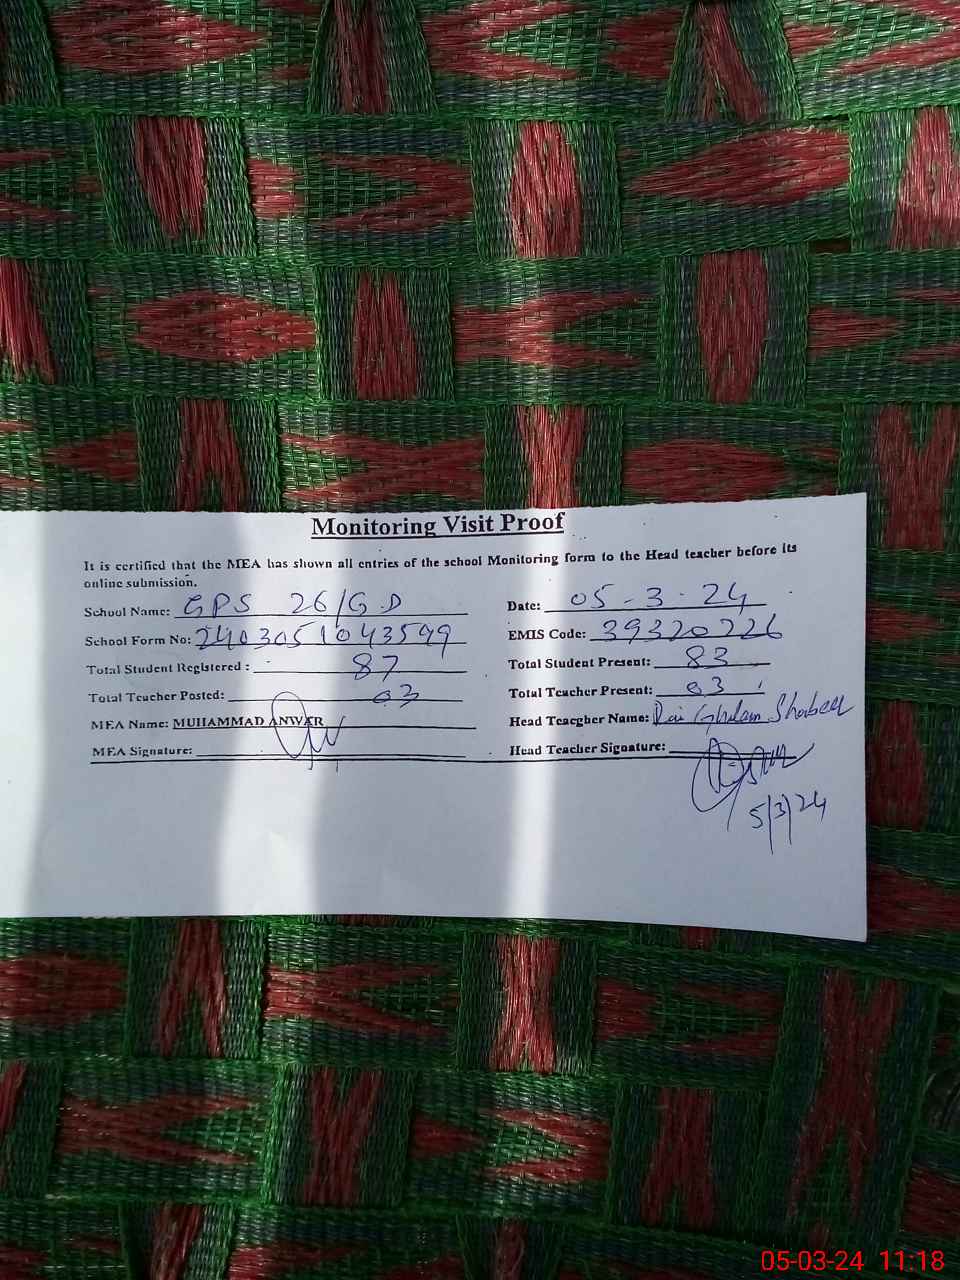 Monitoring Visit Proof
It is certified that the MEA has shown all entries of the school Monitoring form to the Head teacher before its
online submission.
School Name: GPS 26/G.D Date: 05-3-24
School Form No: 2403051043599 EMIS Code: 39320726
Total Student Registered : 87 Total Student Present: 83
Total Teacher Posted: 03 Total Teacher Present: 03
MEA Name: MUHAMMAD ANWAR Head Teacgher Name: Rai Ghulam Shabeer
MEA Signature: Head Teacher Signature:
5/3/24
05-03-24 11:18